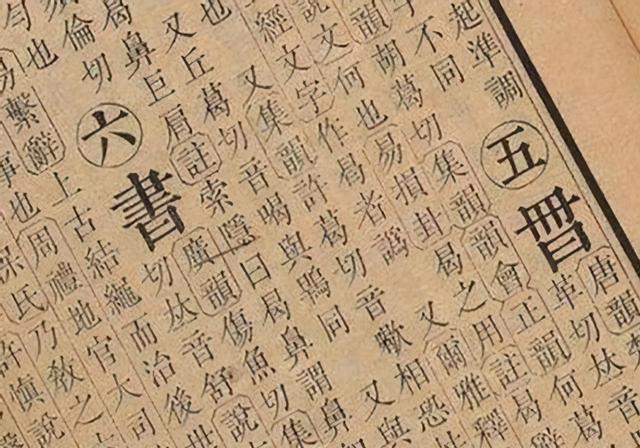 起準調五
唐韻
革切𠀤音
不同
胡葛切集韻韻會正韻何葛
何也易損卦曷之用註曷
說文
韻
經文字作曷者譌
又爾雅釋
又集韻許葛切音歇相恐
又丘葛切音喝與鶡同
又與
曷鼻巨肩註索隱曰曷鼻謂鼻
倫切
六書
廣韻傷魚切集
切𠀤音舒說
也
易繫辭上古結繩而治後世
事也周禮地官大司
保氏乃敎之
許慎說